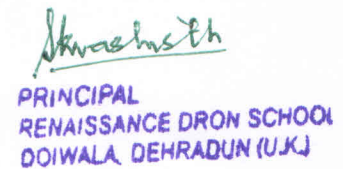 PRINCIPAL
RENAISSANCE DRON SCHOOL
DOIWALA, DEHRADUN (U.K.)